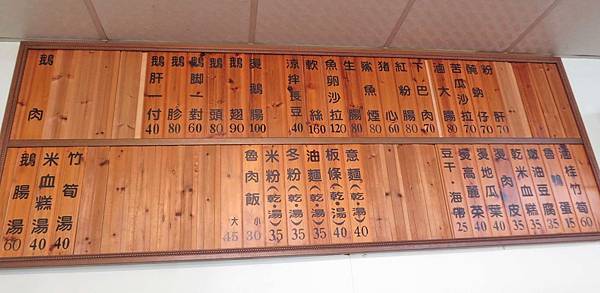 鵝肉
鵝肝一付40
鵝胗80
鵝腳一對60
鵝頭80
鵝翅90
燙鵝腸100
涼拌長豆40
軟絲160
魚卵沙拉120
生腸80
鯊魚煙80
豬心60
紅粉腸80
下巴肉70
滷大腸80
苦瓜沙拉70
醃蚋仔70
粉肝70
鵝腸湯60
米血糕湯40
竹筍湯40
魯肉飯 大45 小30
米粉(乾.湯)35
冬粉(乾.湯)35
油麵(乾.湯)35
板條(乾.湯)40
意麵(乾.湯)40
豆干.海帶25
燙高麗菜40
燙地瓜葉40
燙肉皮35
乾米血糕35
嫩油豆腐35
魯鴨蛋15
滷桂竹筍60